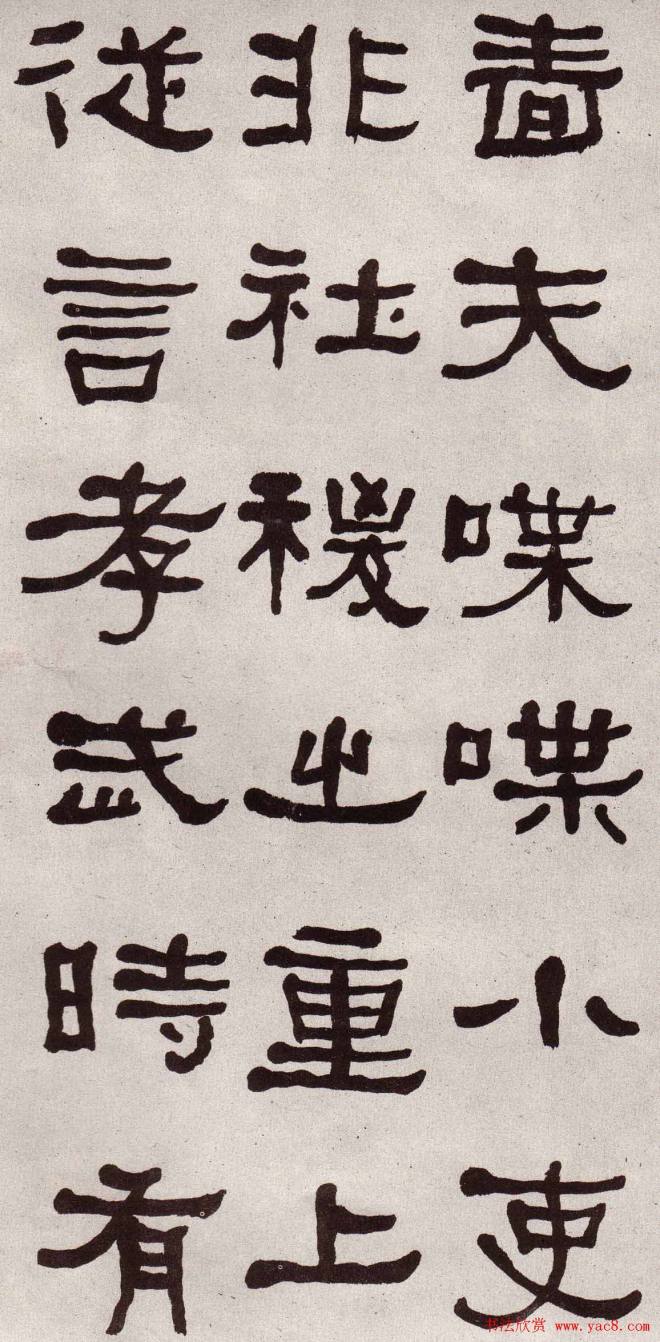 嗇夫喋喋小吏
非社稷之重上
從言孝武時有
书法欣赏 www.yac8.com